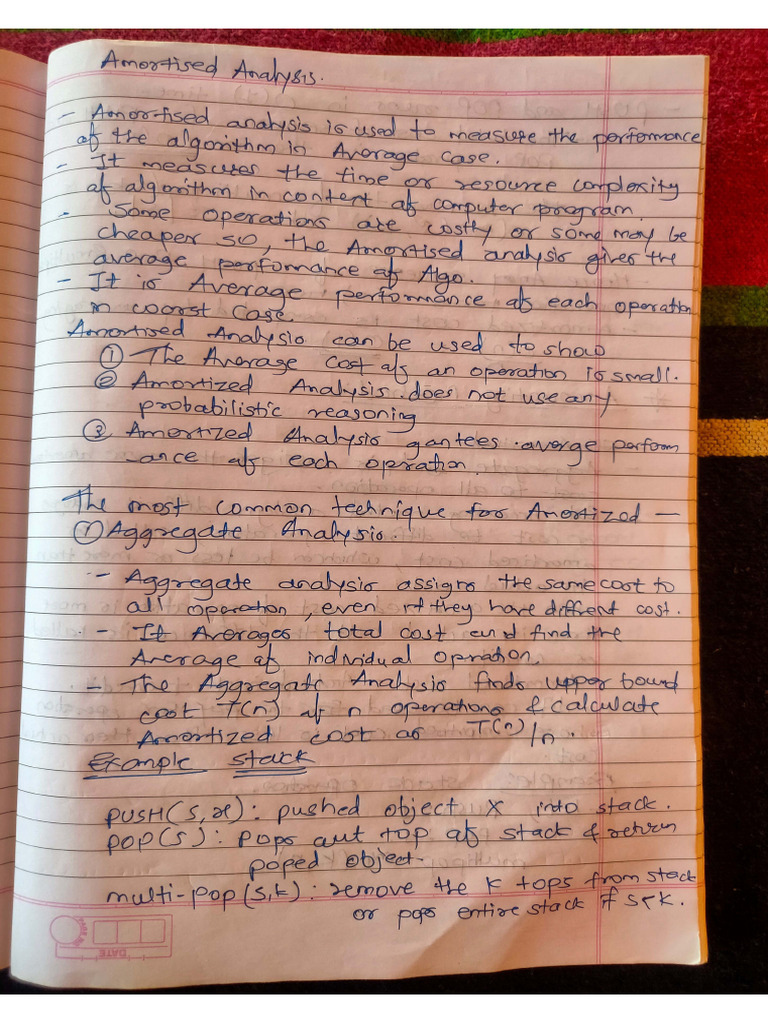 Amortised Analysis.
- Amortised analysis is used to measure the performance
of the algorithm in Average case.
- It measures the time or resource complexity
of algorithm in content of computer program.
- Some operations are costly or some may be
cheaper so, the Amortised analysis gives the
average perfomance of Algo.
- It is Average performance of each operation
in worst case.
Amortised Analysis can be used to show
① The Average cost of an operation is small.
② Amortized Analysis does not use any
probabilistic reasoning
③ Amortized Analysis gantees averge perform
-ance of each opration.
The most common technique for Amortized —
① Aggregate Analysis.
- Aggregate analysis assigns the same cost to
all operation, even if they have diffrent cost.
- It Averages total cost and find the
Average of individual opration.
- The Aggregate Analysis finds upper bound
cost T(n) of n operations & calculate
Amortized cost as T(n)/n.
Example stack
PUSH(S,x): pushed object X into stack.
POP(S): Pops out top of stack & return
poped object.
multi-pop(S,k): remove the K tops from stack
or pops entire stack if S<K.
DATE